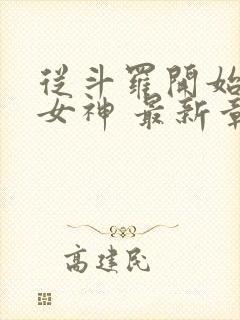 從斗羅開始
女神 最新章
高建民